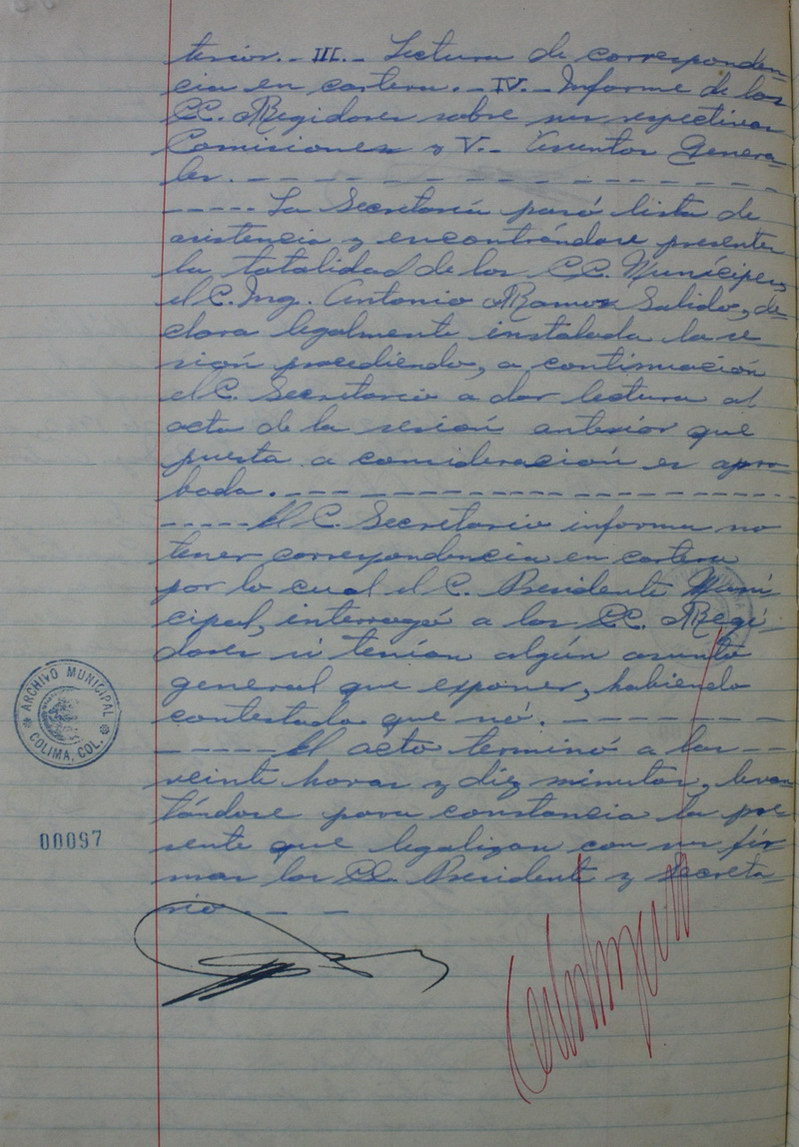 terior.- III.- Lectura de corresponden-
cia en cartera.- IV.- Informe de los
CC. Regidores sobre sus respectivas
Comisiones y V.- Asuntos Genera-
les. - - - - - - - - - - - - - - -
- - - - - La Secretaría pasó lista de
asistencia y encontrándose presentes
la totalidad de los CC. Munícipes,
el C. Ing. Antonio Ramos Salido, de-
clara legalmente instalada la se
sión procediendo, a continuación
el C. Secretario a dar lectura al
acta de la sesión anterior que
puesta a consideración es apro-
bada. - - - - - - - - - - - - - -
- - - - - El C. Secretario informa no
tener correspondencia en cartera
por lo cual el C. Presidente Muni
cipal, interrogó a los CC. Regi-
dores si tenían algún asunto
general que exponer, habiendo
contestado que nó. - - - - - - - -
- - - - - El acto terminó a las - -
veinte horas y diez minutos, levan
tándose para constancia la pre-
sente que legalizan con sus fir
mas los CC. Presidente y Secreta-
rio. - - -
ARCHIVO MUNICIPAL
COLIMA, COL.
00097